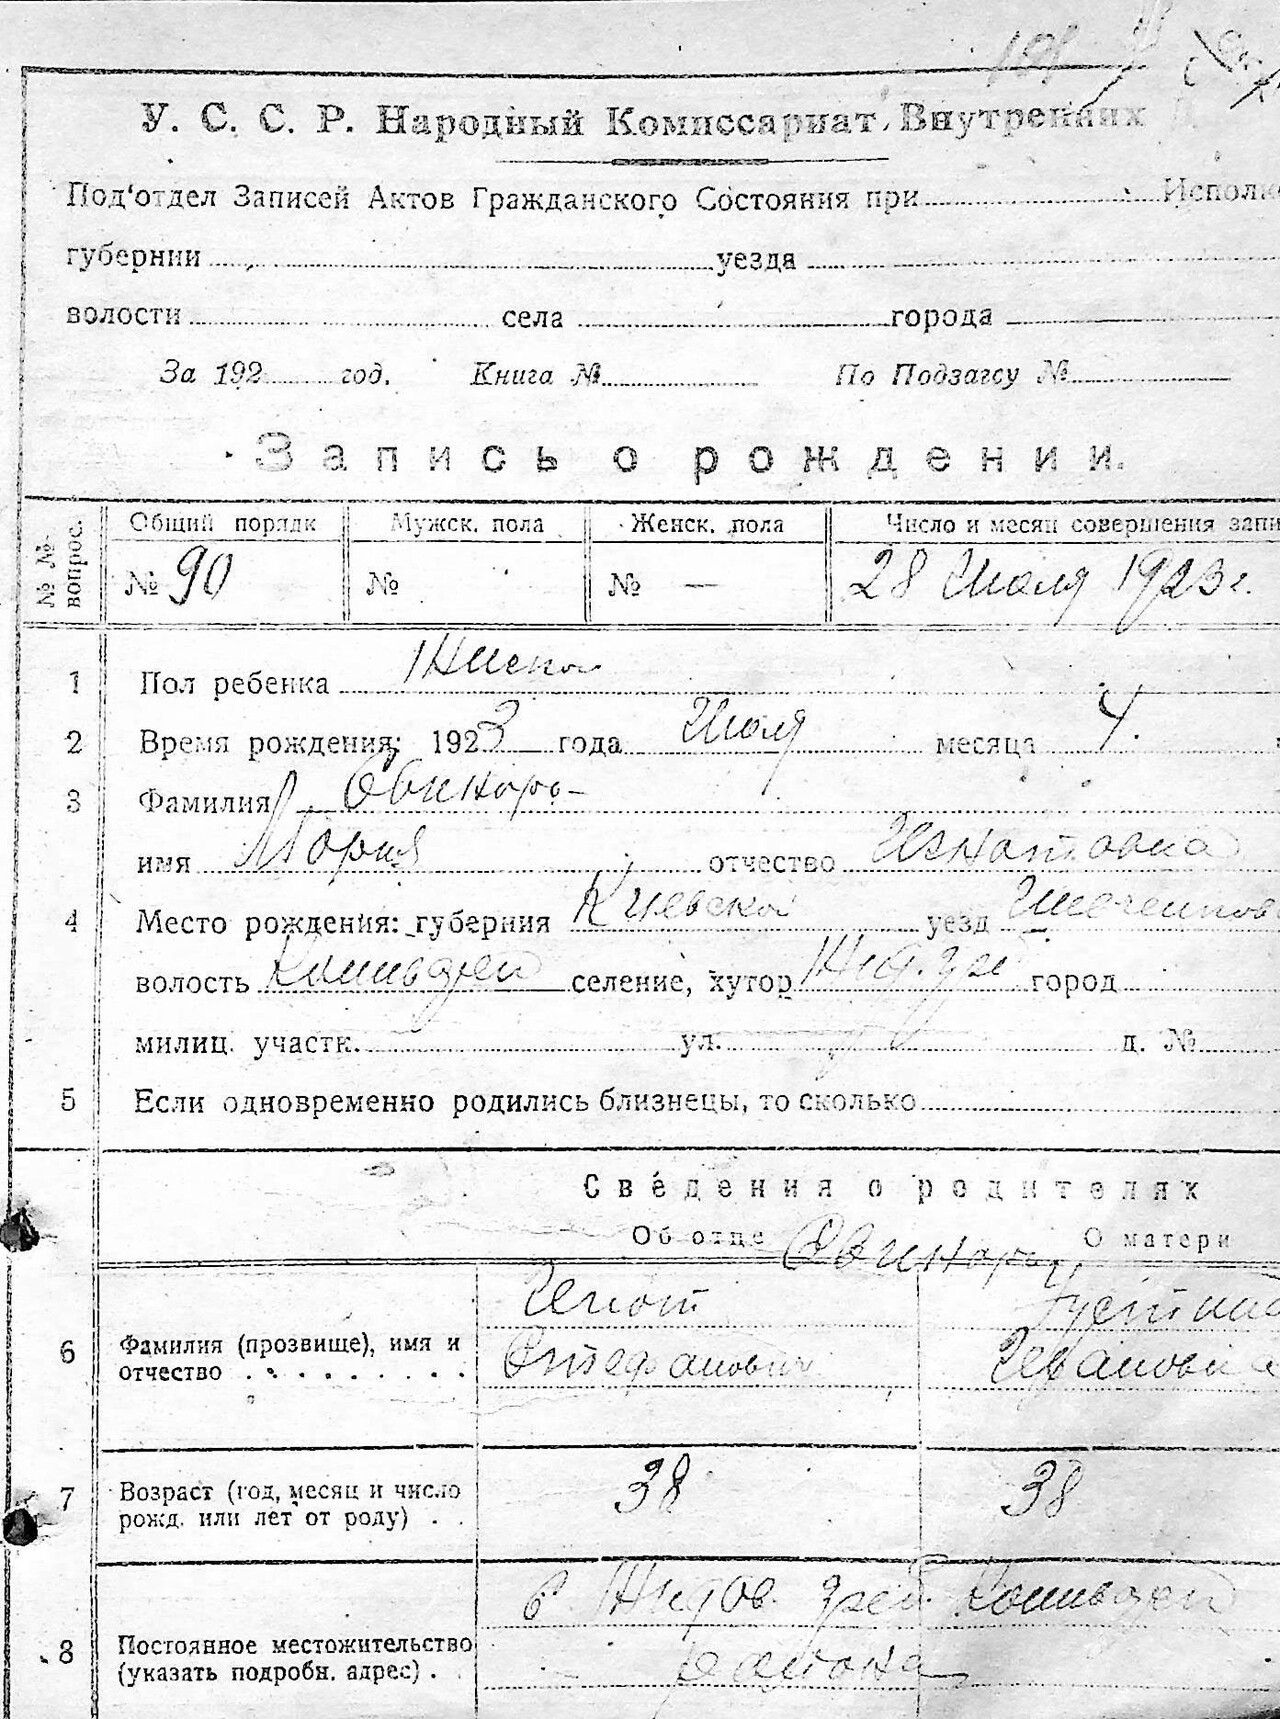 У. С. С. Р. Народный Комиссариат Внутренних
Под'отдел Записей Актов Гражданского Состояния при Исполк
губернии уезда
волости села города
За 192 год. Книга № По Подзагсу №
Запись о рождении.
№ № вопрос. Общий порядк Мужск. пола Женск. пола Число и месяц совершения запи
№ 90 № № — 28 Июля 1923 г.
1 Пол ребенка Женск
2 Время рождения: 1923 года Июля месяца 4.
3 Фамилия Свинарь
имя Мария отчество Игнатовна
4 Место рождения: губерния Киевской уезд Шевченков
волость селение, хутор город
милиц. участк. ул. д. №
5 Если одновременно родились близнецы, то сколько
Сведения о родителях
Об отце Свинарь О матери
Игнат Устина
6 Фамилия (прозвище), имя и
отчество Стефанович Ивановна
7 Возраст (год, месяц и число
рожд. или лет от роду) 38 38
8 Постоянное местожительство
(указать подробн. адрес) района